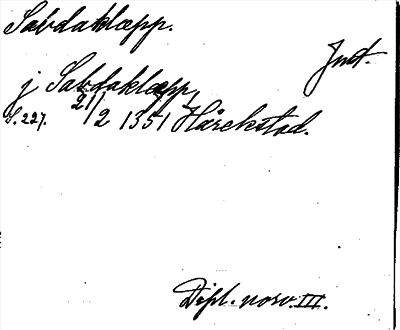 Sabdaklæpp.
Jnt.
j Sabdaklæpp
S. 227. 21/2 1351 Hårekstad.
Dipl. norv. III.